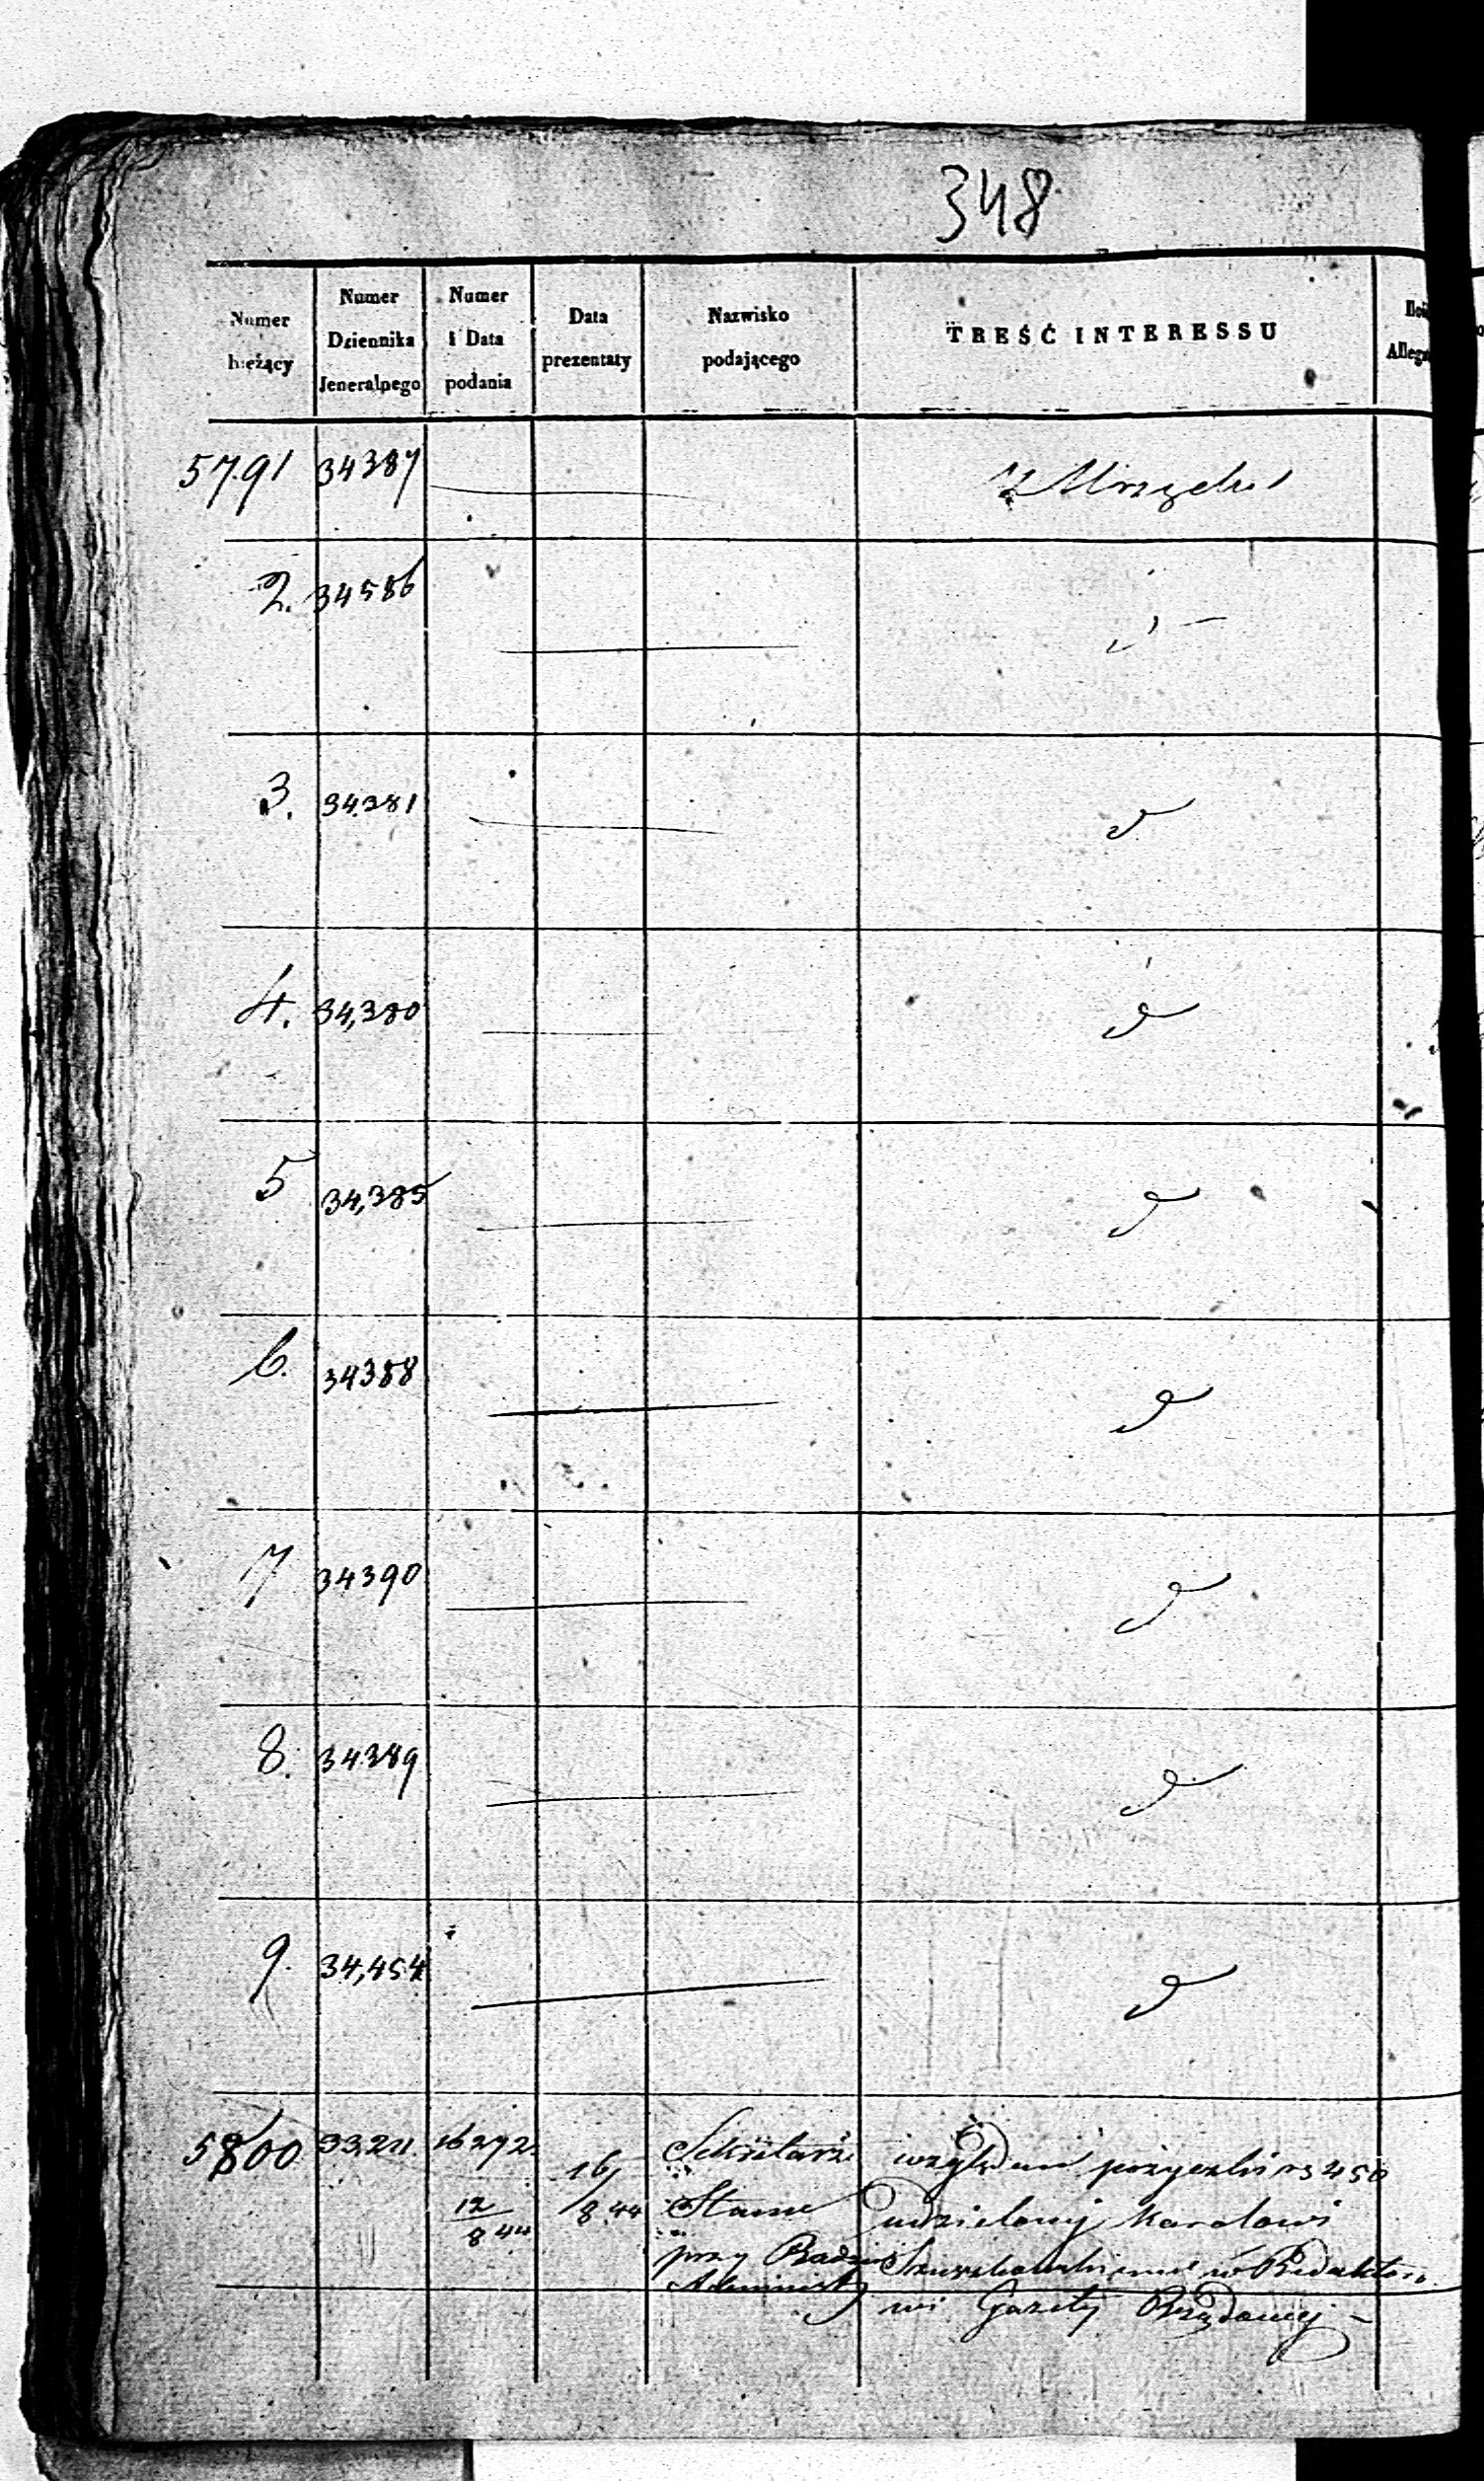 348
Numer bieżący | Numer Dziennika Jeneralnego | Numer i Data podania | Data prezentaty | Nazwisko podającego | TREŚĆ INTERESSU
5791 34387 z Urzędu
2. 34586
3. 34381
4. 34,380
5 34,385
6. 34388
7 34390
8. 34389
9. 34,454
5800 16292 16/8.44 Sekretarz względem pożyczki rs 450
12/8 44 Stanu udzielonej Karolowi
przy Radzie Redaktoro
Administr wi Gazety Rządowej